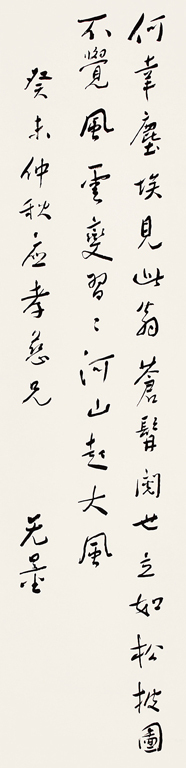 何幸塵埃見此翁蒼髯閱世立如松披圖
不覺風雲變習〻河山起大風
癸未仲秋應孝慈兄
无量